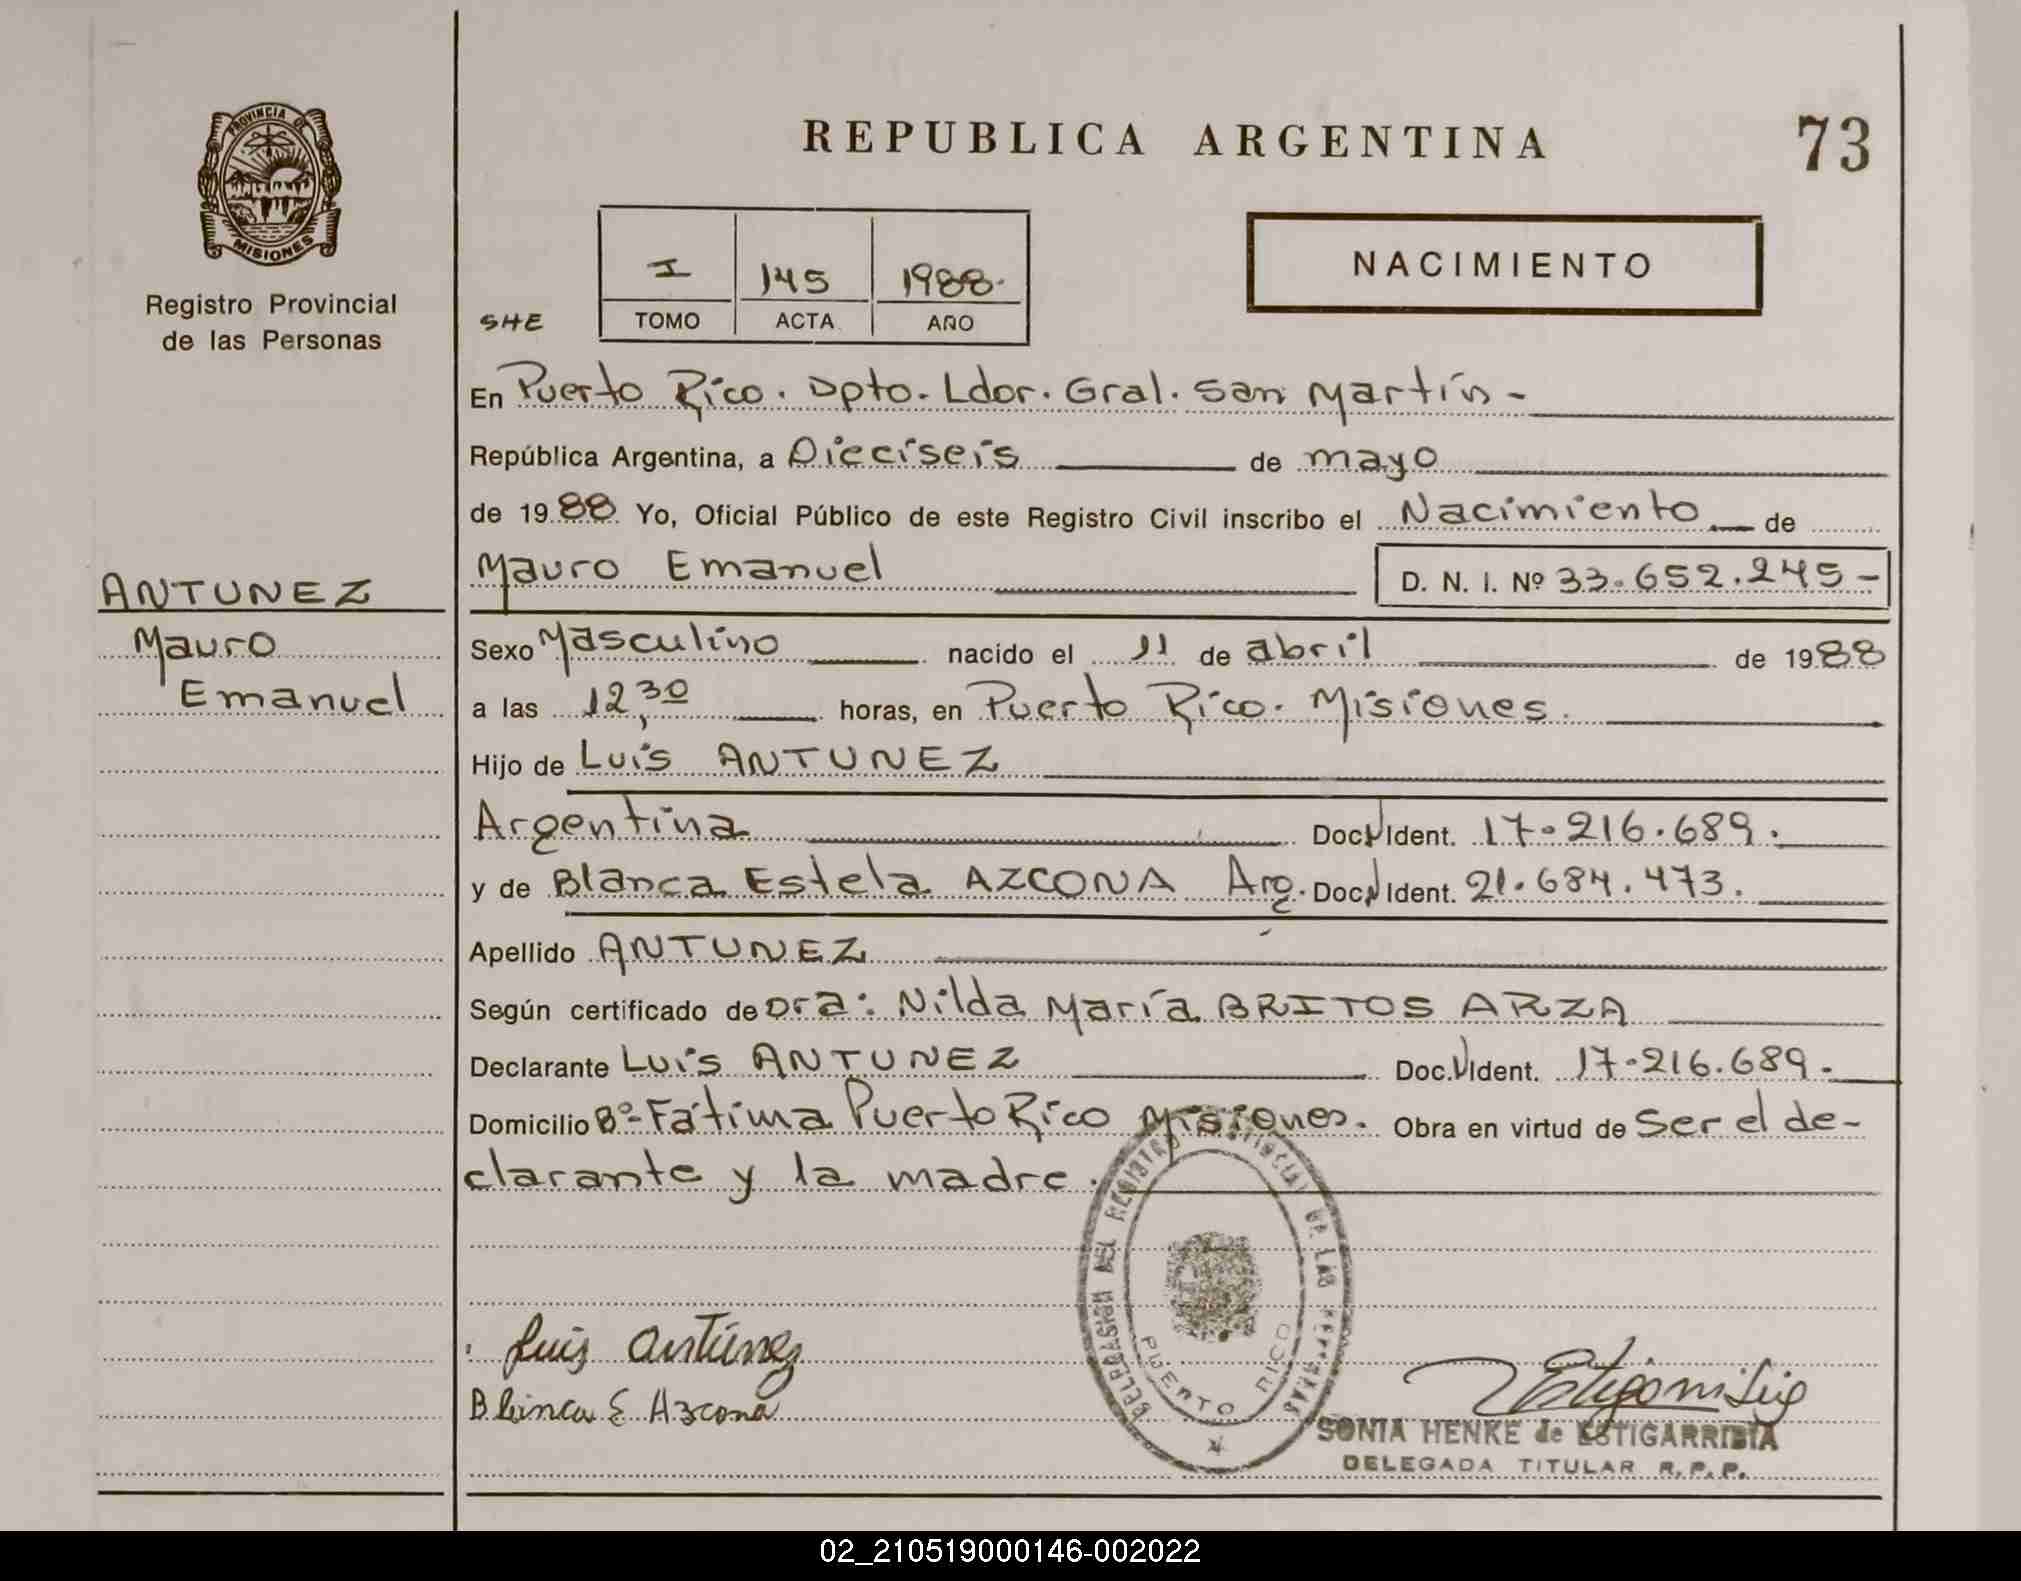 PROVINCIA DE
MISIONES
Registro Provincial
de las Personas
REPUBLICA ARGENTINA
73
I 145 1988.
TOMO ACTA AÑO
NACIMIENTO
SHE
En Puerto Rico. Dpto. Ldor. Gral. San Martín -
República Argentina, a Dieciseis de mayo
de 1988 Yo, Oficial Público de este Registro Civil inscribo el Nacimiento de
Mauro Emanuel D. N. I. Nº 33.652.245-
ANTUNEZ
Mauro
Emanuel
Sexo Masculino nacido el 11 de abril de 1988
a las 12,30 horas, en Puerto Rico. Misiones.
Hijo de Luis ANTUNEZ
Argentina Doc. Ident. 17.216.689.
y de Blanca Estela AZCONA Arg. Doc. Ident. 21.684.473.
Apellido ANTUNEZ
Según certificado de Dra: Nilda María BRITOS ARZA
Declarante Luis ANTUNEZ Doc. Ident. 17.216.689.
Domicilio Bº Fátima Puerto Rico Misiones. Obra en virtud de Ser el de-
clarante y la madre.
DELEGACION DEL REGISTRO PROVINCIAL DE LAS PERSONAS
PUERTO RICO
Luis Antúnez
Blanca E Azcona
SONIA HENKE de ESTIGARRIBIA
DELEGADA TITULAR R. P. P.
02_210519000146-002022